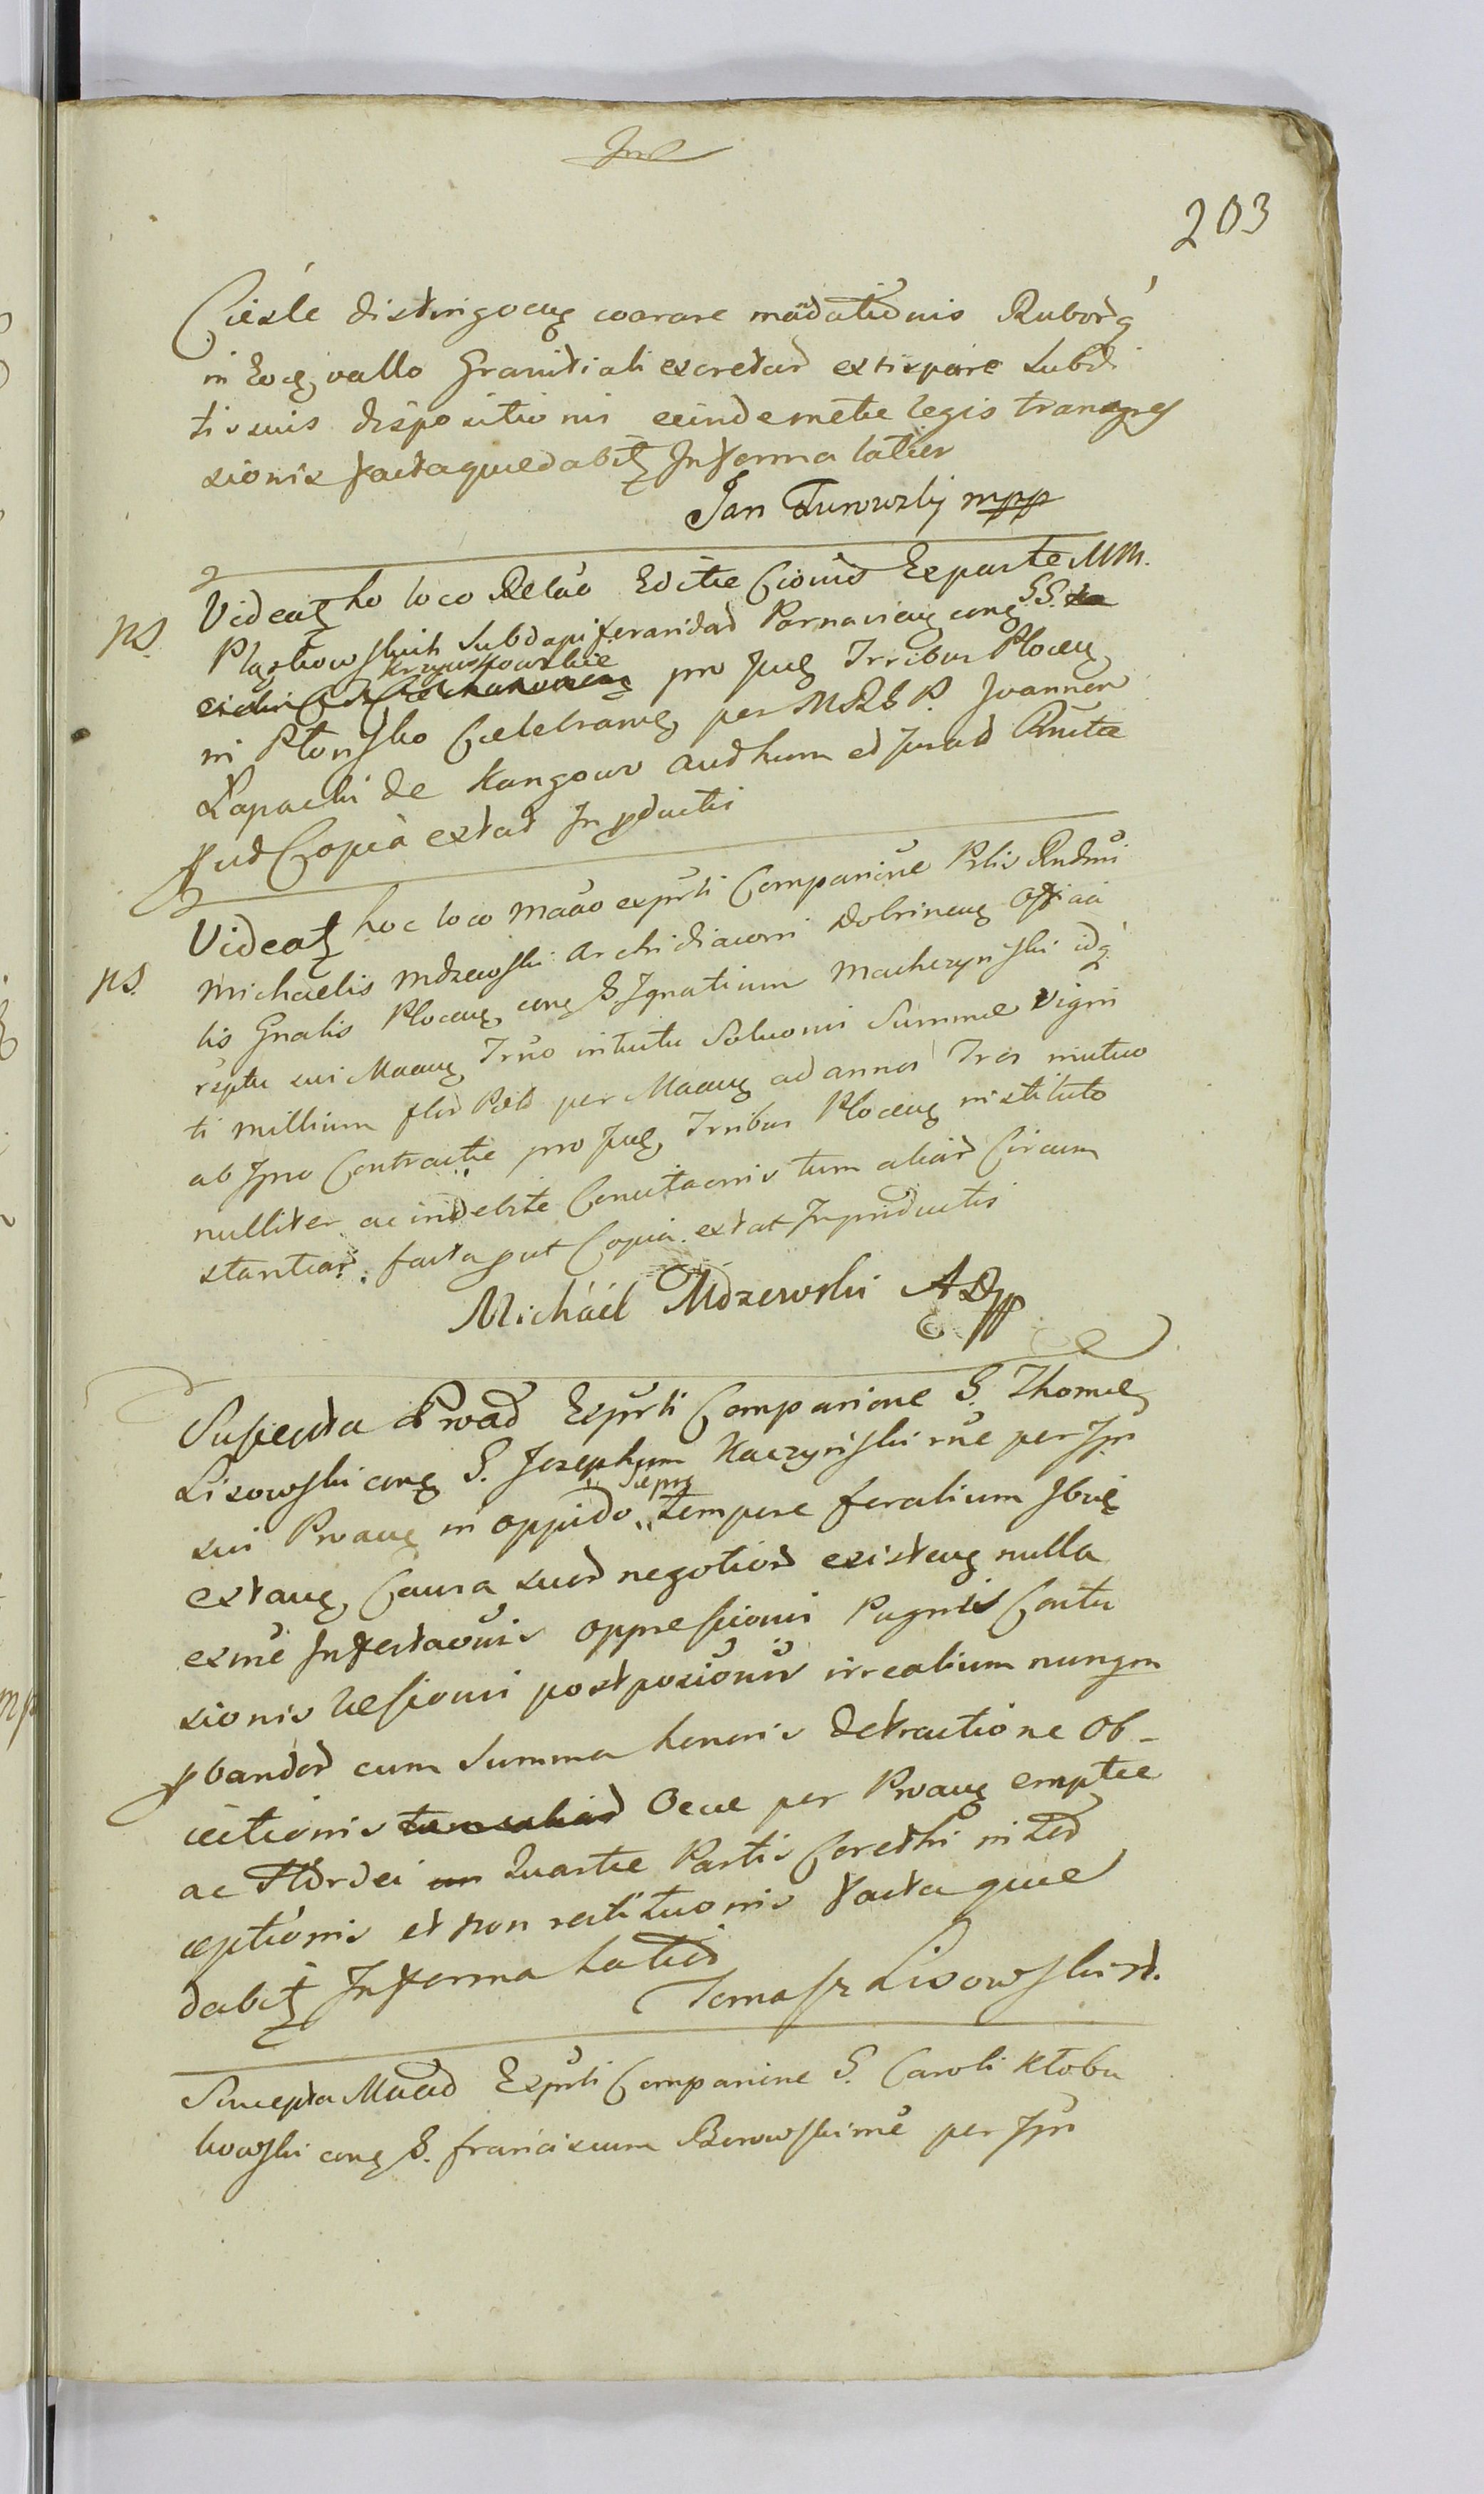 203
Ciesle distingveng coarare mādationis Ruborz
in Eoq, vallo Granitiali excretar extirpare Subdi
tis suis dispositionis eiindemetie legis transgres
sionis factaquedabit Informa latier
Jan Turowsky mpp
Videat ho loco Relao Editie Cionis Exparte MM.
ps. Plastkowskich Subdapiferaridar Parnavieng cong SS.
Krzywkowskie
pro Jug Irribus Ploceng
in Płonsko Celebrang, per MRSP. Joannen
Łapachi de Kangow audhum ed Jurad
put Copia extat In pductis
Videat hoc loco maao exprti Comparione Prlis Rndmi
ps. Michaelis Mdzewski Archidiaconi Dobrineng Officia
lis Gnalis Ploceng cong S. Ignatium Machczynski idq
rsptu sui Maang Irno intuitu Soluoni Summe Vigin
ti millium flor Pol per Maang ad annos Tres mutuo
ab Ipso Contractie pro Jug, Irribus Ploceng instituto
nulliter ac indebite Concitaonis tum aliar Circum
stantiar facta put Copia extat Inproductis
Michaël Mdzewski AD pp
Suscepta Prod Exprti Comparione S. Thome
Lisowski cong S. Josephum Kaczynski rne per Ipn
Sieprz
sui Proang in oppido tempore feralium Ibuę
extang, Causa suor negotior existeng nulla
exme Infestaonis oppressioni Pugnis Contu
sionis lesioni postposionis irrealium nungm
pbandor cum summa honoris detractione Ob-
iectionis Ocue per Proang emptie
ac Hordei Quartie Partis Coretki in
ceptionis et non restituonis facta que
dabit Informa latior
Tomasz Lisowski
Suscepta Maad Exprti Comparione S. Caroli Kłobu
kowski cong S. franciscum Borowski rne per Ipn